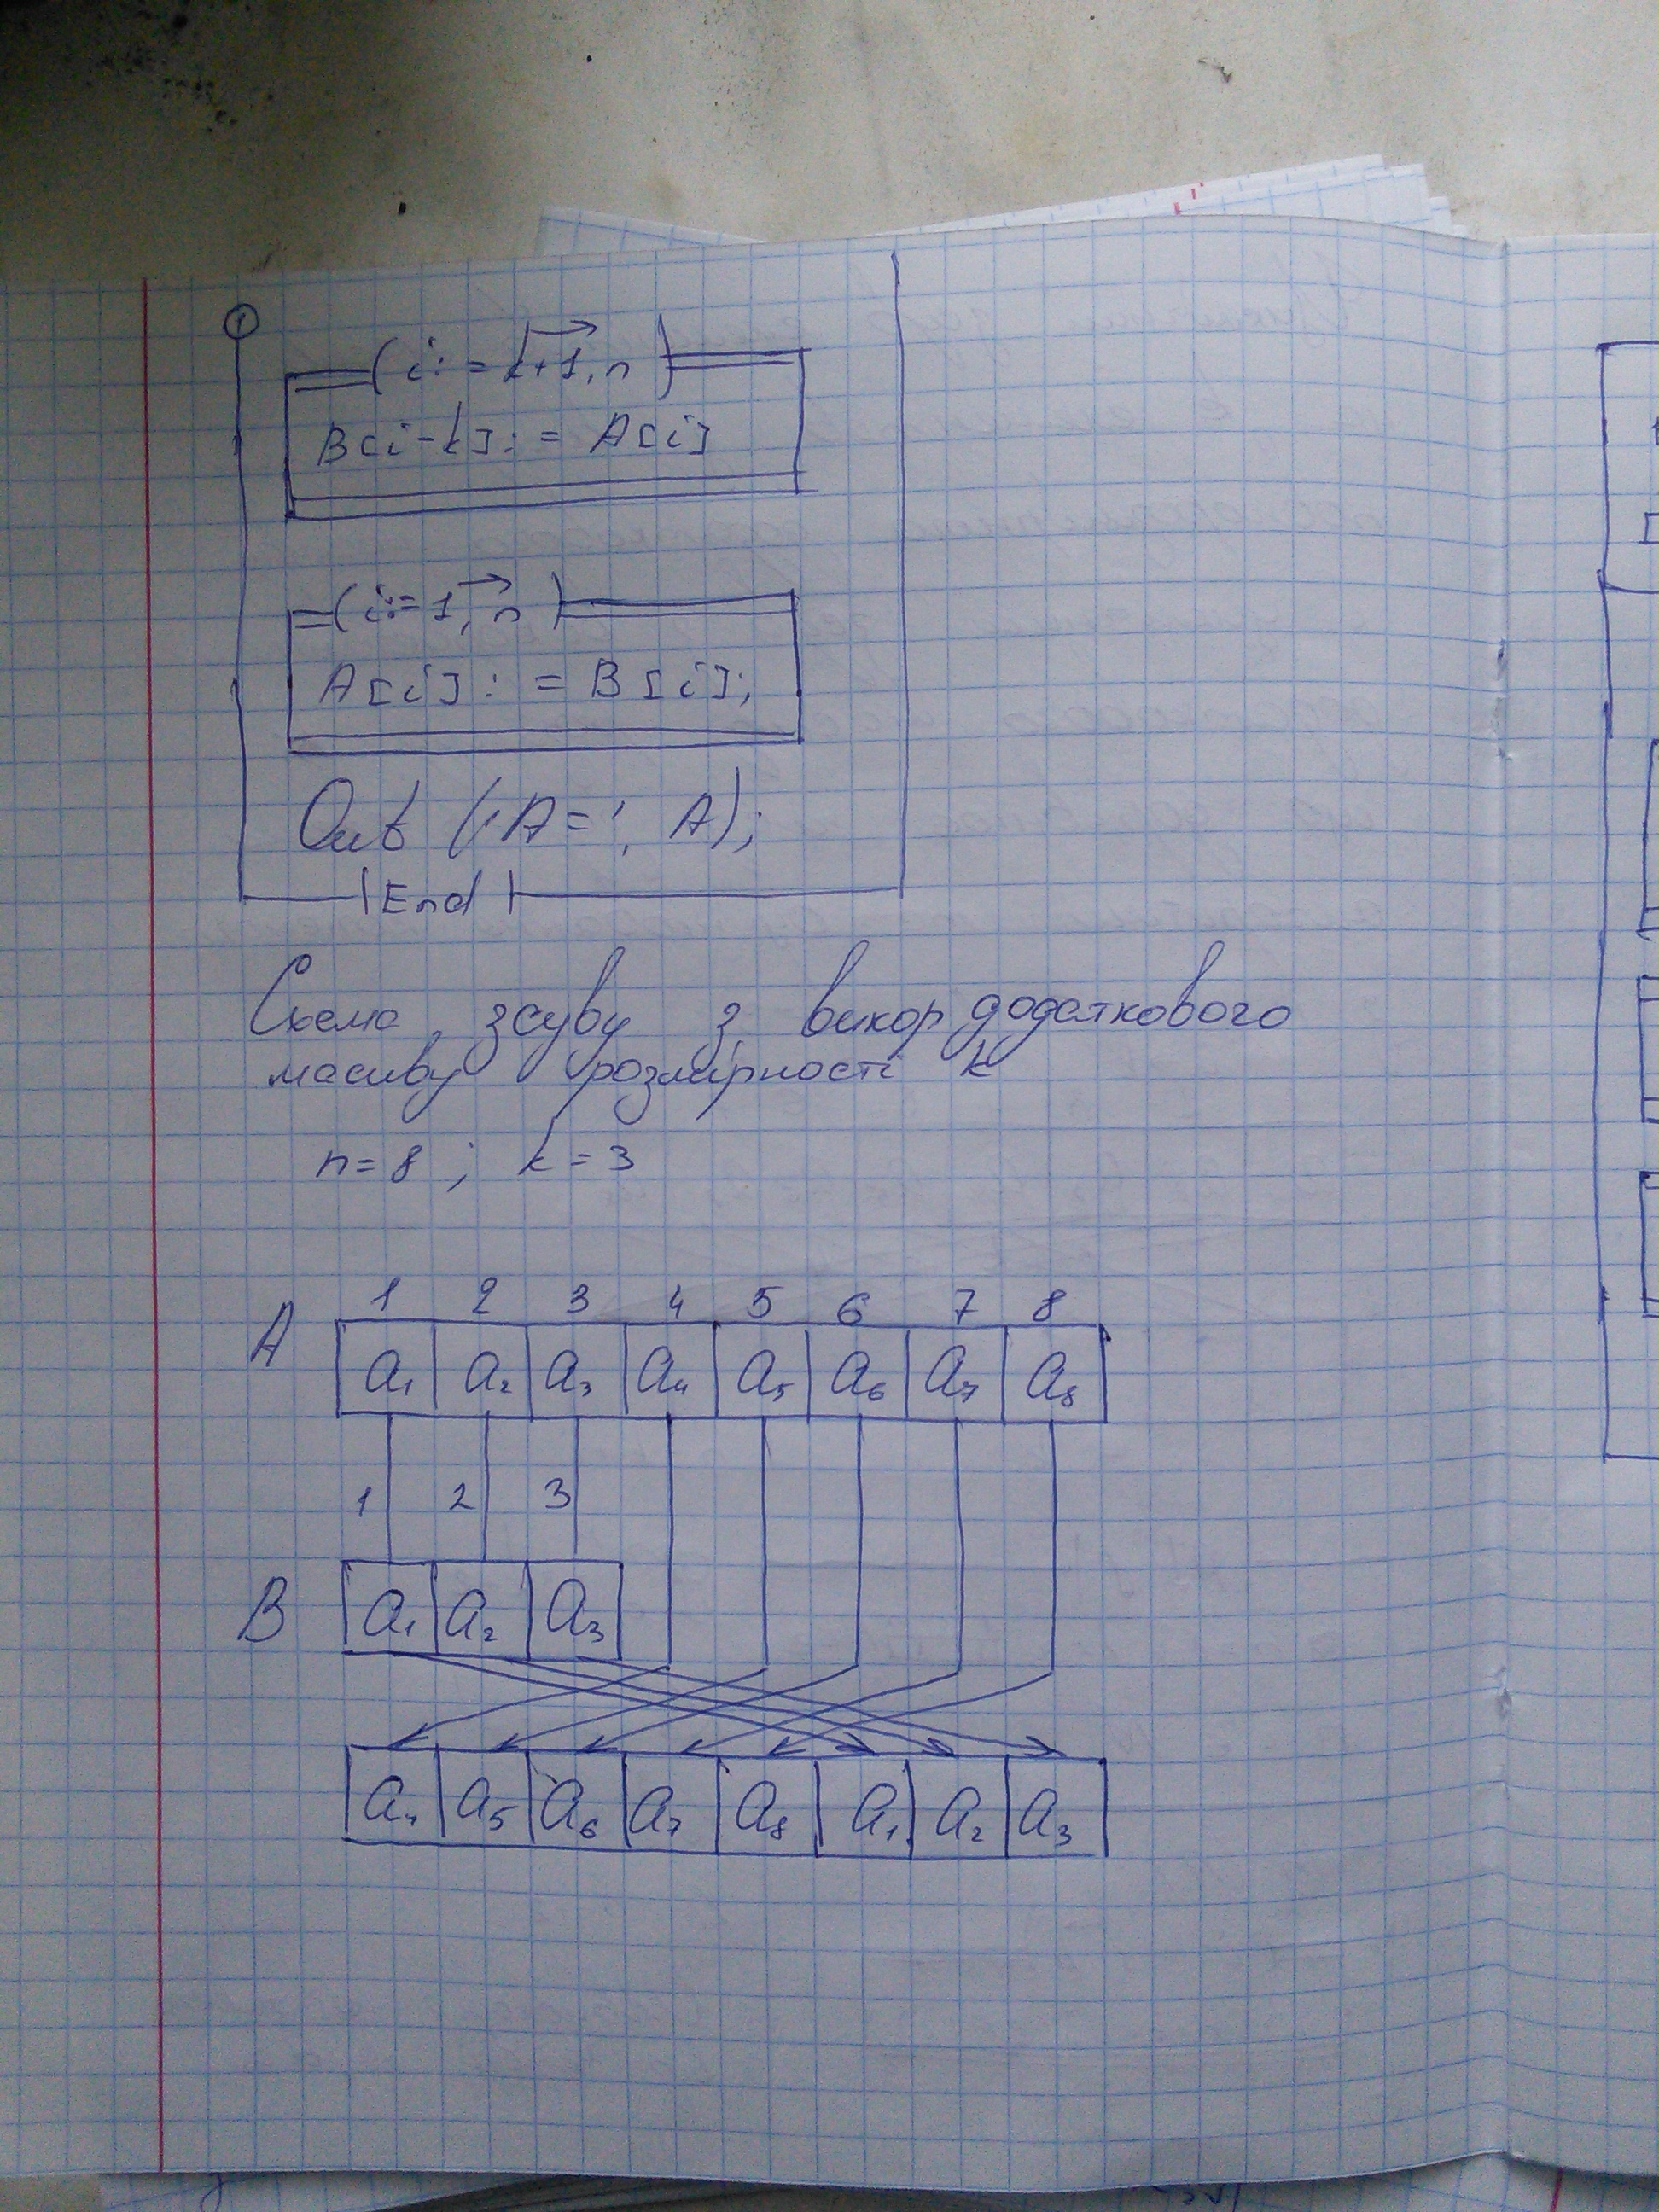 1
(i:=k+1,n)
B[i-k]:=A[i]
(i:=1,n)
A[i]:=B[i];
Out ('A=', A);
End
Схема зсуву з викор додаткового
масиву розмірності k
n=8; k=3
1 2 3 4 5 6 7 8
A a₁ a₂ a₃ a₄ a₅ a₆ a₇ a₈
1 2 3
B a₁ a₂ a₃
a₄ a₅ a₆ a₇ a₈ a₁ a₂ a₃